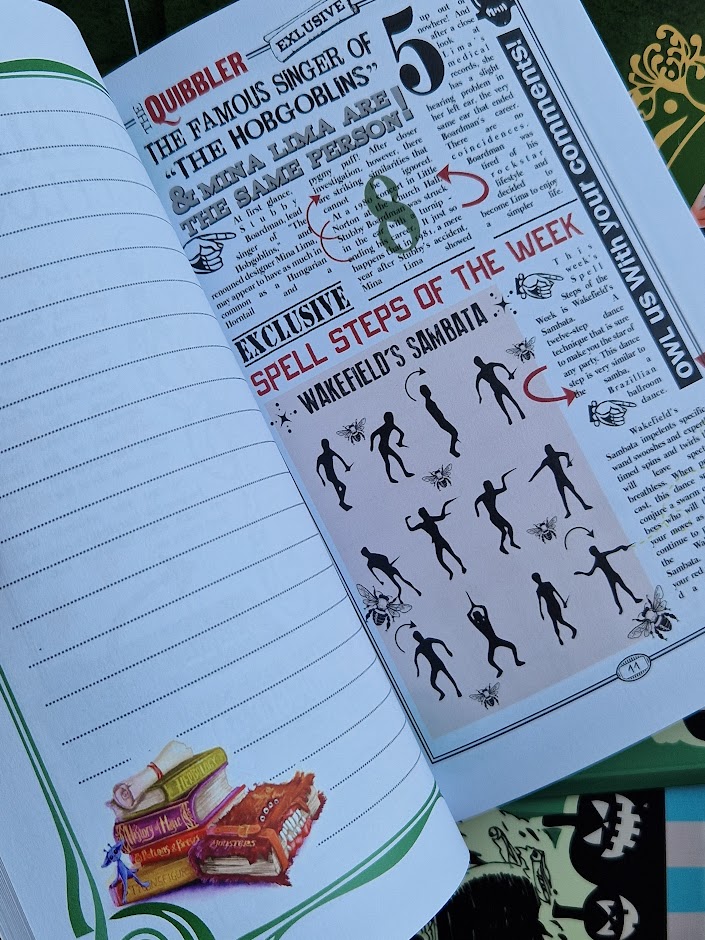 THE QUIBBLER
EXLUSIVE
THE FAMOUS SINGER OF
"THE HOBGOBLINS"
& MINA LIMA ARE
THE SAME PERSON!
At first glance,
Stubby
Boardman lead
singer of The
Hobgoblins and
renouned designer Mina Lima
may appear to have as much in
common as a Hungarian
Horntail and a
pygmy puff! After closer
investigation, however, there
are striking similarities that
cannot be ignored.
At a Little
Norton Church Hall
Stubby Boardman was struck
ending turnip -
happens to be just so
year after Stubby's accident,
Mina Lima showed
8
5
up out of
nowhere! And
after a close
look at
Lima's
medical
records, she
has a slight
hearing problem in
her left ear, the very
same ear that ended
Boardman's career.
There are no
coincidences.
Boardman was
tired of his
rockstar
lifestyle and
decided to
become Lima to enjoy
a simpler life.
OWL US with your comments!
EXCLUSIVE
SPELL STEPS OF THE WEEK
WAKEFIELD'S SAMBATA
This
week's,
Spell
Steps of the
Week is Wakefield's
Sambata. A
twelve-step dance
technique that is sure
to make you the star of
any party. This dance
step is very similar to
the samba, a
Brazillian
ballroom
dance.
Wakefield's
Sambata impelents specific
wand swooshes and expert
timed spins and twirls
will leave
breathless. When
cast, this dance
conjure a swarm
bees will
your moves as
continue to
the
Sambata.
your red
da
11
HERBOLOGY
History of Magic
Potions & Brews
TRANSFIGUR
MONSTERS